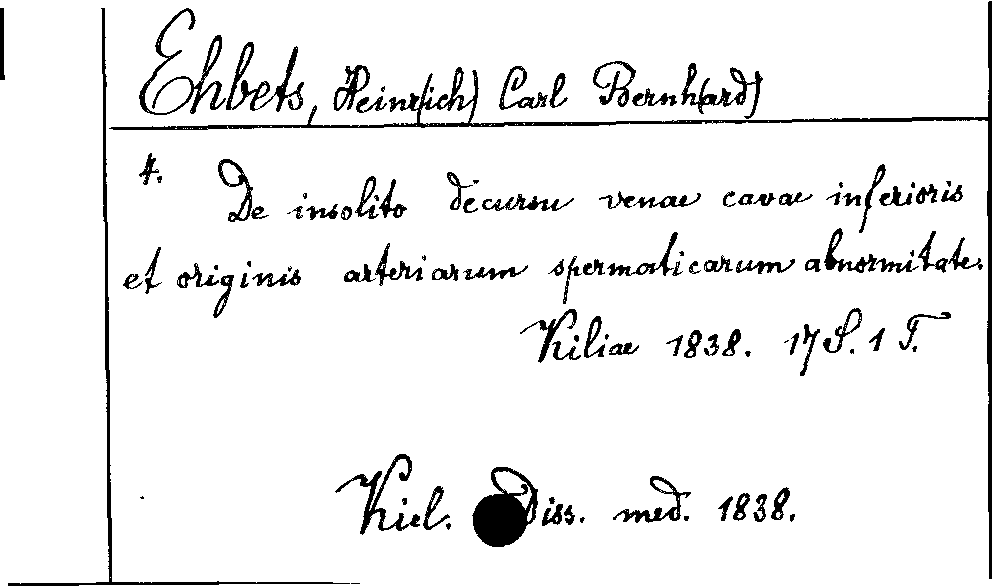 Ehbets, Hein(rich) Carl Bernh(ard)
4. De insolito decursu venae cavae inferioris
et originis arteriarum spermaticarum abnormitate.
Kiliae 1838. 17 S. 1 T.
Kiel. Diss. med. 1838.